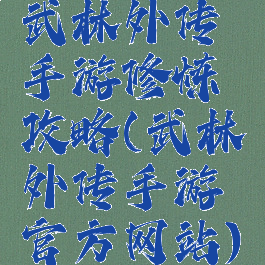 武林外传
手游修炼
攻略(武林
外传手游
官方网站)